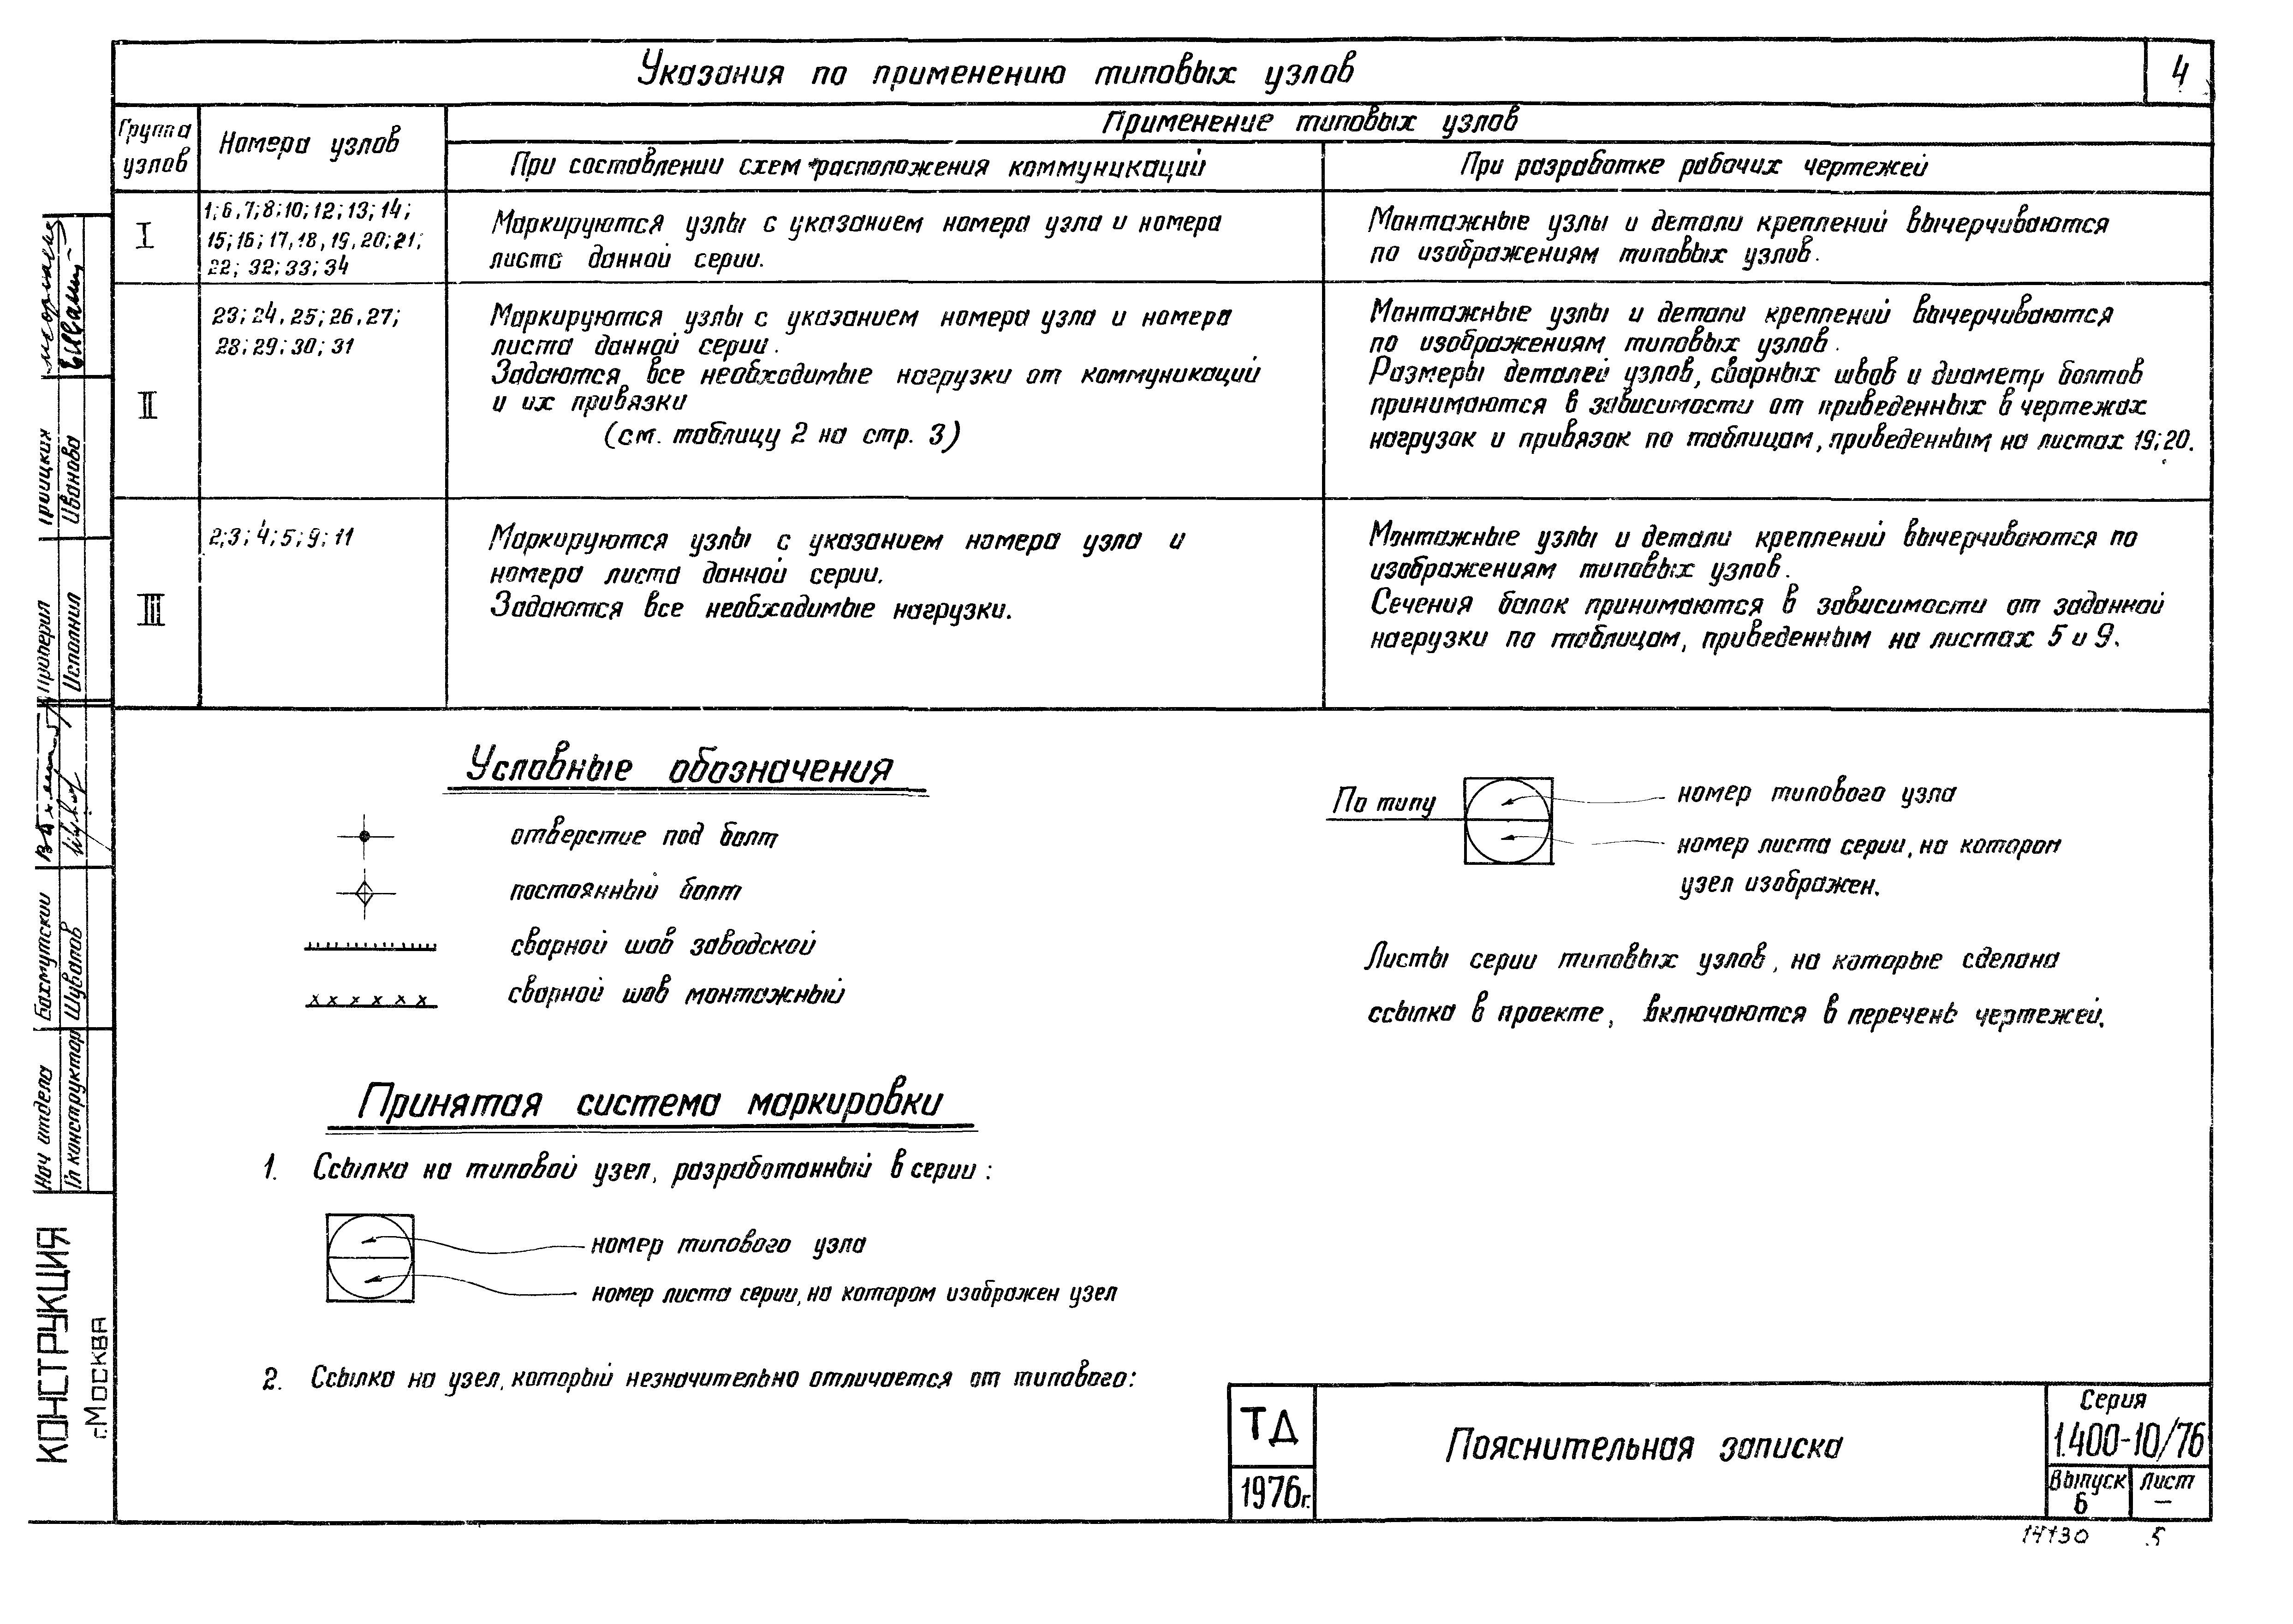 Указания по применению типовых узлов
4
Группа узлов
Номера узлов
Применение типовых узлов
При составлении схем расположения коммуникаций
При разработке рабочих чертежей
I
1; 6, 7; 8; 10; 12; 13; 14;
15; 16; 17, 18, 19, 20; 21;
22; 32; 33; 34
Маркируются узлы с указанием номера узла и номера
листа данной серии.
Монтажные узлы и детали креплений вычерчиваются
по изображениям типовых узлов.
II
23; 24, 25; 26, 27;
28; 29; 30; 31
Маркируются узлы с указанием номера узла и номера
листа данной серии.
Задаются все необходимые нагрузки от коммуникаций
и их привязки
(см. таблицу 2 на стр. 3)
Монтажные узлы и детали креплений вычерчиваются
по изображениям типовых узлов.
Размеры деталей узлов, сварных швов и диаметр болтов
принимаются в зависимости от приведенных в чертежах
нагрузок и привязок по таблицам, приведенным на листах 19; 20.
III
2; 3; 4; 5; 9; 11
Маркируются узлы с указанием номера узла и
номера листа данной серии.
Задаются все необходимые нагрузки.
Монтажные узлы и детали креплений вычерчиваются по
изображениям типовых узлов.
Сечения балок принимаются в зависимости от заданной
нагрузки по таблицам, приведенным на листах 5 и 9.
Условные обозначения
отверстие под болт
постоянный болт
сварной шов заводской
сварной шов монтажный
Принятая система маркировки
1. Ссылка на типовой узел, разработанный в серии:
номер типового узла
номер листа серии, на котором изображен узел
2. Ссылка на узел, который незначительно отличается от типового:
По типу
номер типового узла
номер листа серии, на котором
узел изображен.
Листы серии типовых узлов, на которые сделана
ссылка в проекте, включаются в перечень чертежей.
ТД
1976г.
Пояснительная записка
Серия
1.400-10/76
Выпуск
6
Лист
—
14130 5
КОНСТРУКЦИЯ
г. Москва
Нач отдела Бахмутский
Гл конструктор Шувалов
Проверил Троицкий
Исполнил Иванова